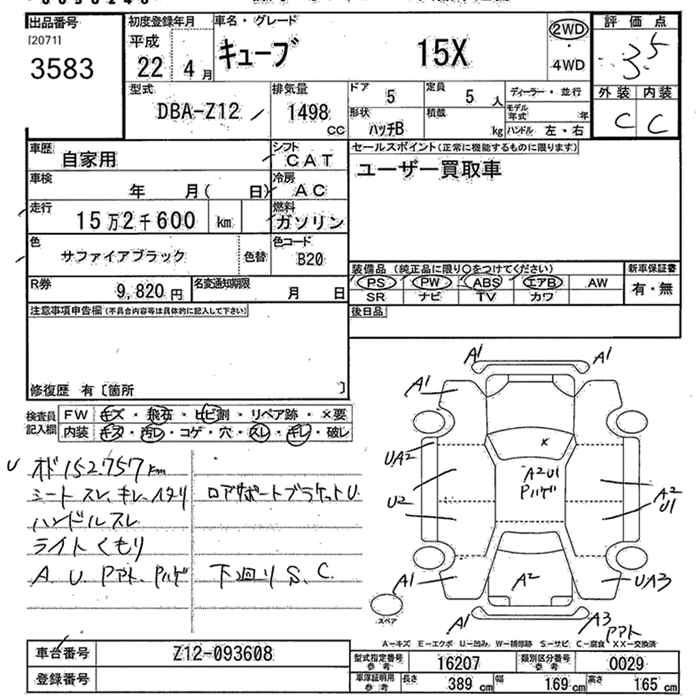 出品番号 初度登録年月 車名・グレード 評価点
I20711 平成 キューブ 15X 2WD 3.5
3583 22 4月 ・4WD 外装 内装
型式 排気量 ドア 定員 ディーラー・並行 C C
DBA-Z12 1498 cc 5 5人 モデル年式 年
形状 積載
ハッチB kg ハンドル 左・右
車歴 シフト セールスポイント(正常に機能するものに限ります)
自家用 CAT ユーザー買取車
車検 冷房
年 月( 日) AC
走行 燃料
15万2千600 km ガソリン
色 色コード
サファイアブラック 色替 B20 装備品 (純正品に限り〇をつけてください) 新車保証書
R券 名変通知期限 PS PW ABS エアB AW 有・無
9,820円 月 日 SR ナビ TV カワ
注意事項申告欄 (不具合内容等は具体的に記入して下さい) 後日品
修復歴 有〔箇所 〕
検査員記入欄 FW キズ・飛石・ヒビ割・リペア跡・×要
内装 キズ・汚レ・コゲ・穴・スレ・キレ・破レ
152757km
シート スレ、キレ、
ハンドルスレ
ライトくもり
A. U.
ロアサポートブラケットU.
下廻り S. C.
A1 A1
A1 A1
UA2 x
A2 U1
U2 A2
U1
A1 A2 UA3
スペア A1 A3
A-キズ E-エクボ U-凹み W-補修跡 S-サビ C-腐食 XX-交換済
車台番号 Z12-093608
登録番号
型式指定番号 参考 16207 類別区分番号 参考 0029
車庫証明用 参考 長さ 389 cm 幅 169 cm 高さ 165 cm